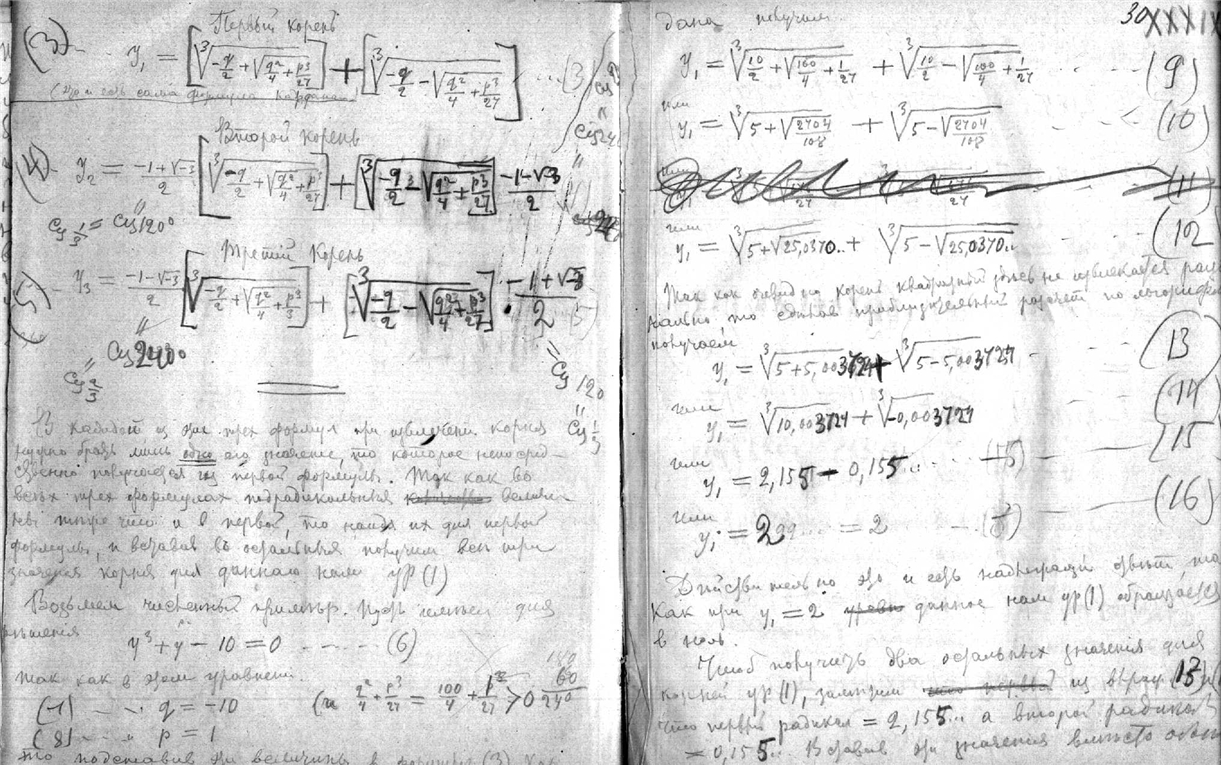 Первый корень
(3) y = [∛(-q/2 + √(q²/4 + p³/27))] + [∛(-q/2 - √(q²/4 + p³/27))]
это и есть сама формула Кардана
Второй корень
(4) y₂ = (-1+√-3)/2 [∛(-q/2 + √(q²/4 + p³/27))] + [∛(-q/2 - √(q²/4 + p³/27))] (-1-√-3)/2
120°
Третий корень
(5) y₃ = (-1-√-3)/2 [∛(-q/2 + √(q²/4 + p³/3))] + [∛(-q/2 - √(q²/4 + p³/27))] · (-1+√-3)/2
240°
120
каждой из этих трех формул при извлечении корня
нужно брать лишь одно его значение то которое непосред-
ственно получается из первой формулы. Так как во
всех трех формулах подрадикальныя величи
те что и в первой, то найдя их для первой
формулы, и вставив в остальныя получим все три
значения корня для даннаго нами ур (1)
Возьмем численный пример. Пусть имеем для
решения
y³ + y - 10 = 0 - - - - - (6)
так как в этом уравнении
(7) - - - q = -10 (и q²/4 + p³/27 = 100/4 + p²/27 > 0
180
60
240
(8) - - - " p = 1
то подставив эти величины в формулу (3)
30 XXXIX
дана получим
y₁ = ∛(10/2 + √(100/4 + 1/27)) + ∛(10/2 - √(100/4 + 1/27)) - - - (9)
или
y₁ = ∛(5 + √(2704/108)) + ∛(5 - √(2704/108)) (10)
(11)
или
y₁ = ∛(5 + √25,0370..) + ∛(5 - √25,0370..) - - - (12
Так как очевидно корень квадратный здесь не извлекается раци
нально, то сделав приблизительный разсчет по логорифм
получаем
y₁ = ∛(5 + 5,003724) + ∛(5 - 5,003724) - - (13
или
y₁ = ∛10,003724 + ∛-0,003724 (14
или
y₁ = 2,155 - 0,155 .... (15
или
y₁ = 2 ... = 2 - - - (16)
Действительно это и есть надлежащий ответ, та
как при y₁ = 2 данное нам ур (1) обращается
в ноль.
Чтоб получить два остальных значения для
корней ур (1), заметим из выраж (13)
что первый радикал = 2,155.. а второй радикал
= 0,155... Вставив эти значения вместо обои